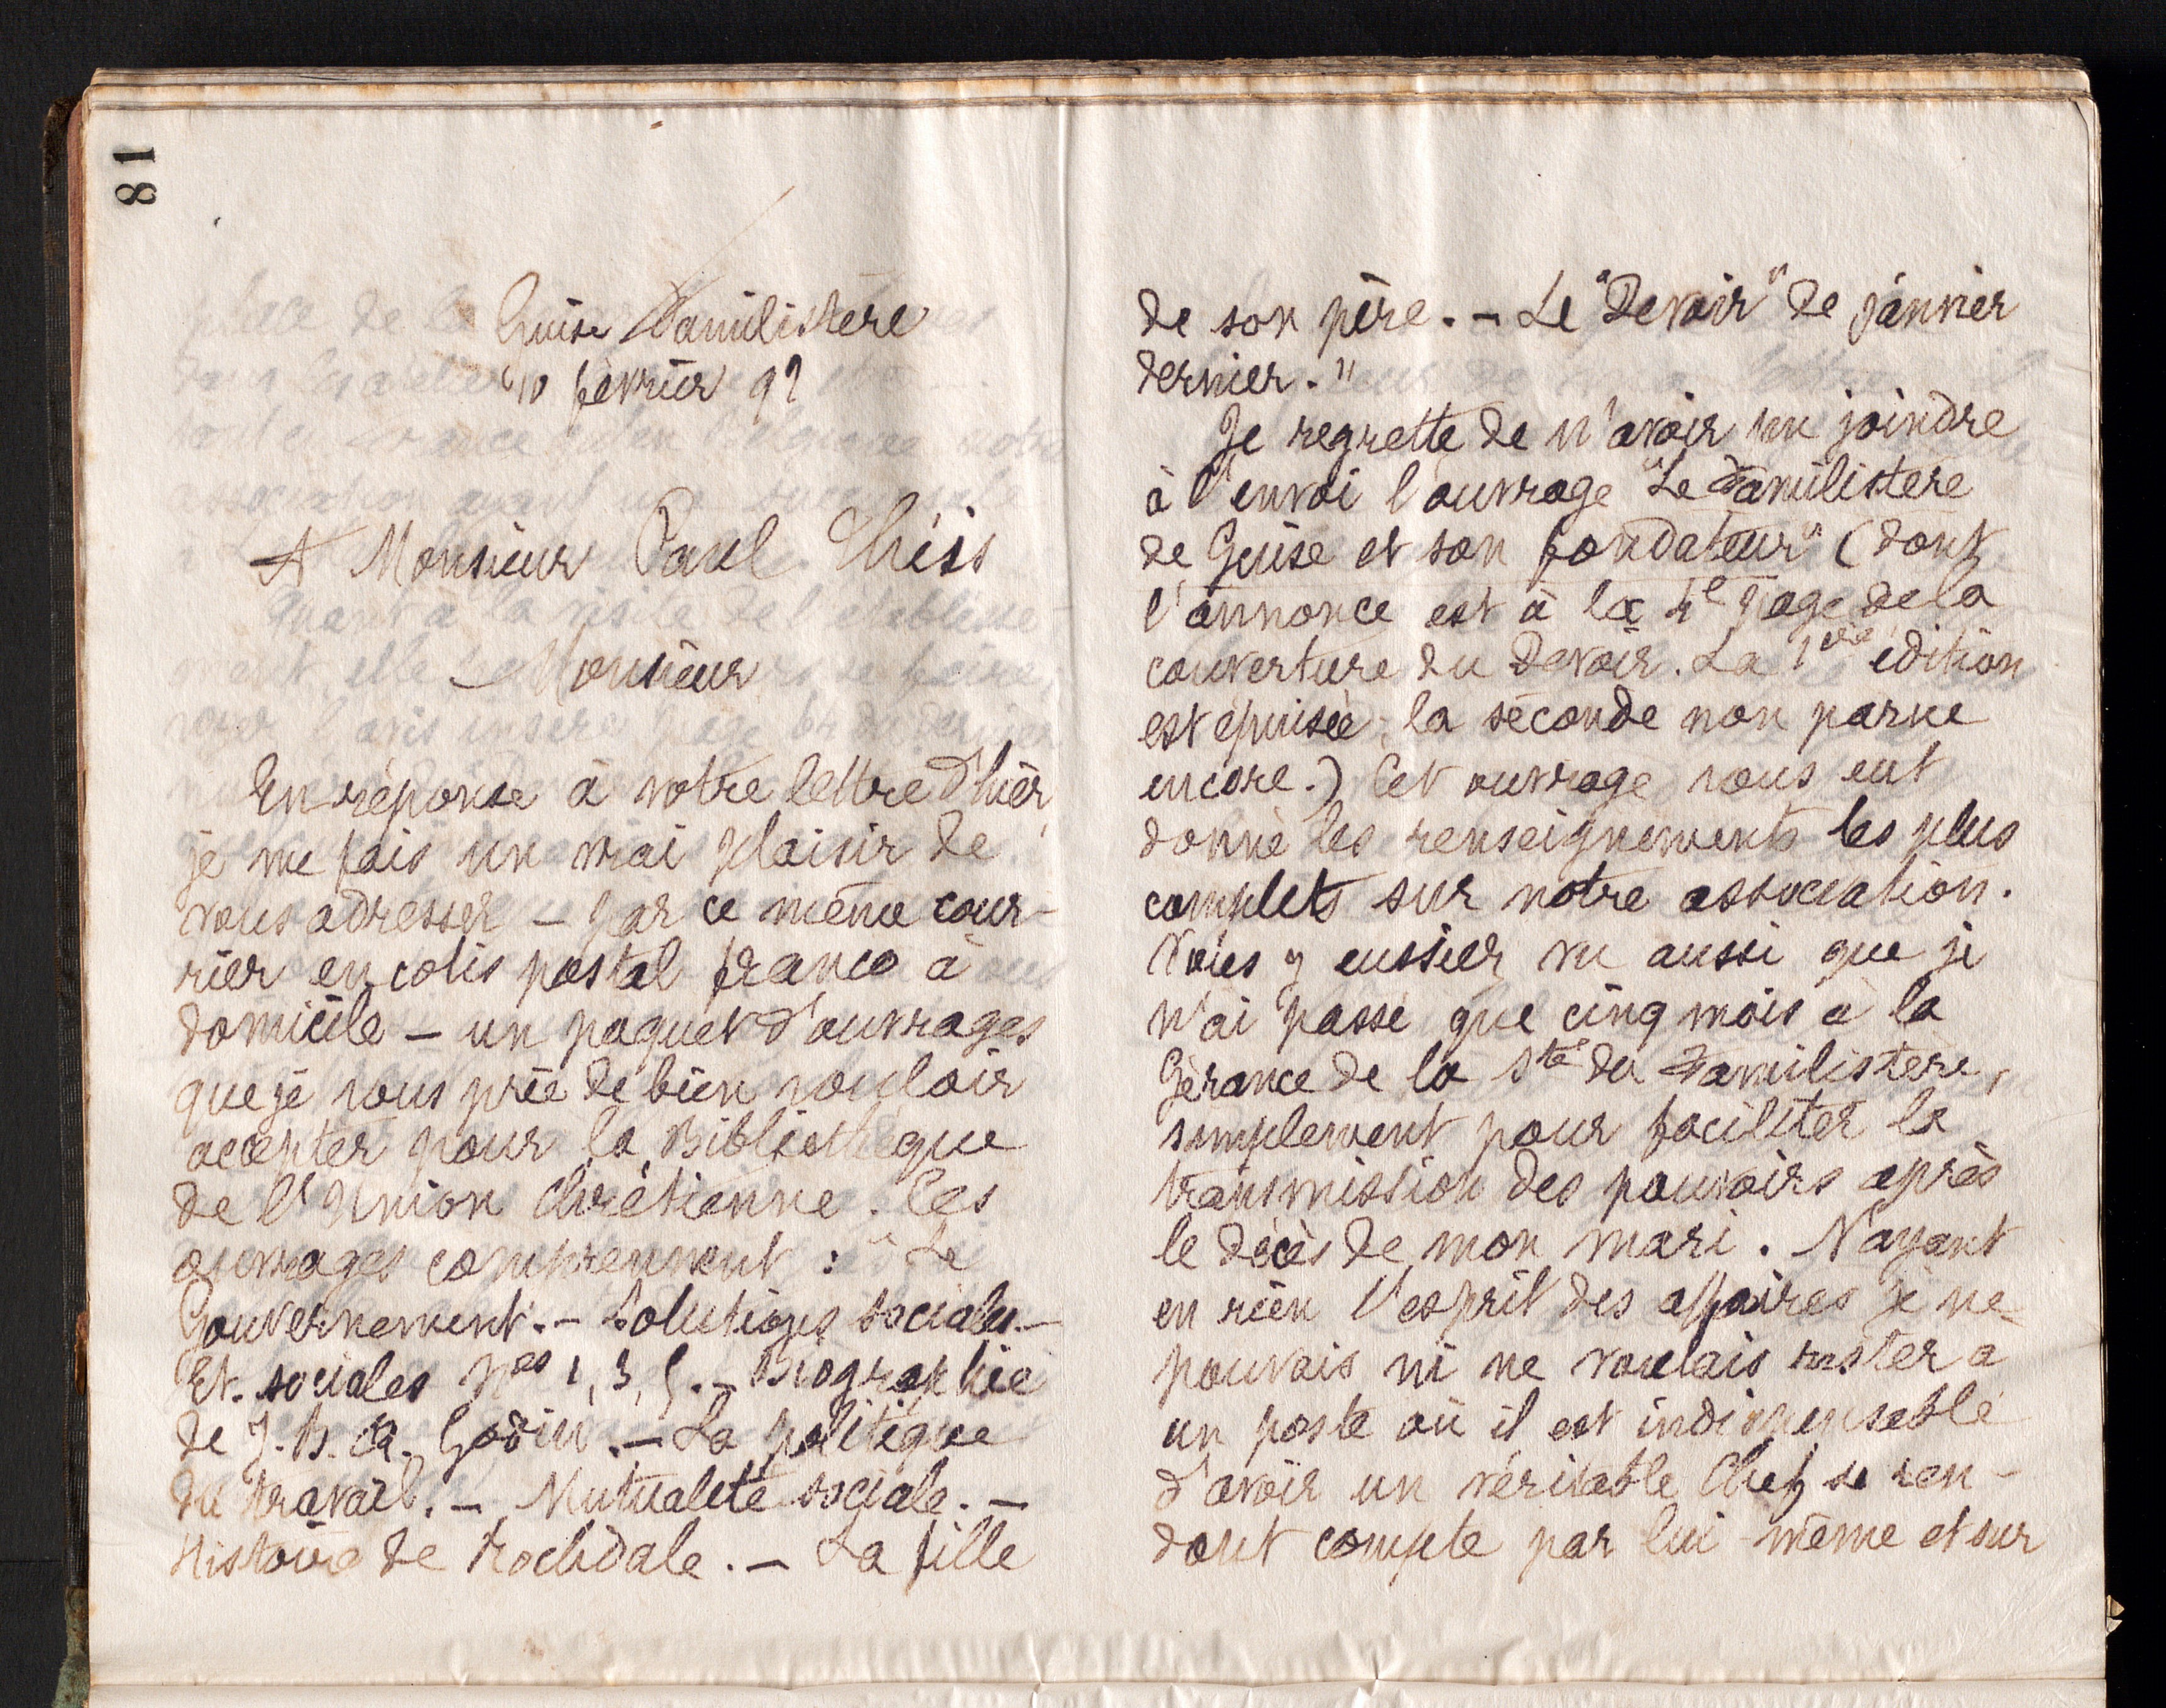 81
Guise Familistère
10 février 92
A Monsieur Paul Théis
Monsieur
En réponse à votre lettre d'hier,
je me fais un vrai plaisir de
vous adresser – par ce même cour-
rier en colis postal franco à
domicile – un paquet d'ouvrages
que je vous prie de bien vouloir
accepter pour la Bibliothèque
de l'Union Chrétienne. Ces
ouvrages comprennent : "Le
Gouvernement. – Solutions sociales. –
Et. sociales Nos 1, 3, 5. – Biographie
de J. B. A. Godin. – La politique
du travail. – Mutualité sociale. –
Histoire de Rochdale. – La fille
de son père. – Le "Devoir" de janvier
dernier."
Je regrette de n'avoir pu joindre
à l'envoi l'ouvrage "Le Familistère
de Guise et son fondateur" (dont
l'annonce est à la 4e page de la
couverture du Devoir. La 1ère édition
est épuisée, la seconde non parue
encore.) Cet ouvrage vous eut
donné les renseignements les plus
complets sur notre association.
Vous y eussiez vu aussi que je
n'ai passé que cinq mois à la
Gérance de la Sté du Familistère,
simplement pour faciliter la
transmission des pouvoirs après
le décès de mon mari. N'ayant
en rien l'esprit des affaires je ne
pouvais ni ne voulais rester à
un poste où il est indispensable
d'avoir un véritable Chef se ren-
dant compte par lui-même et sur